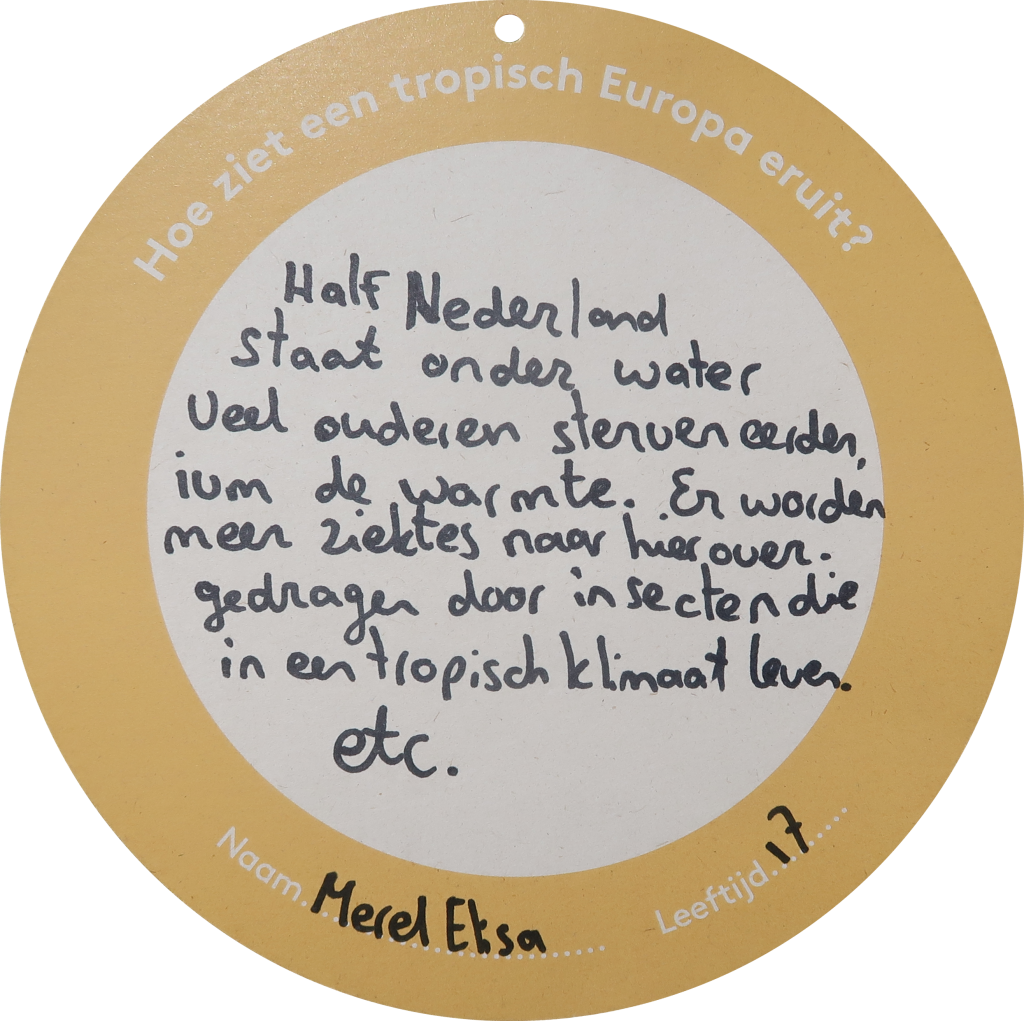 Hoe ziet een tropisch Europa eruit?
Half Nederland
staat onder water
Veel ouderen sterven eerder,
ivm de warmte. Er worden
meer ziektes naar hier over.
gedragen door insecten die
in een tropisch klimaat leven.
etc.
Naam. Merel Elisa
Leeftijd. 17